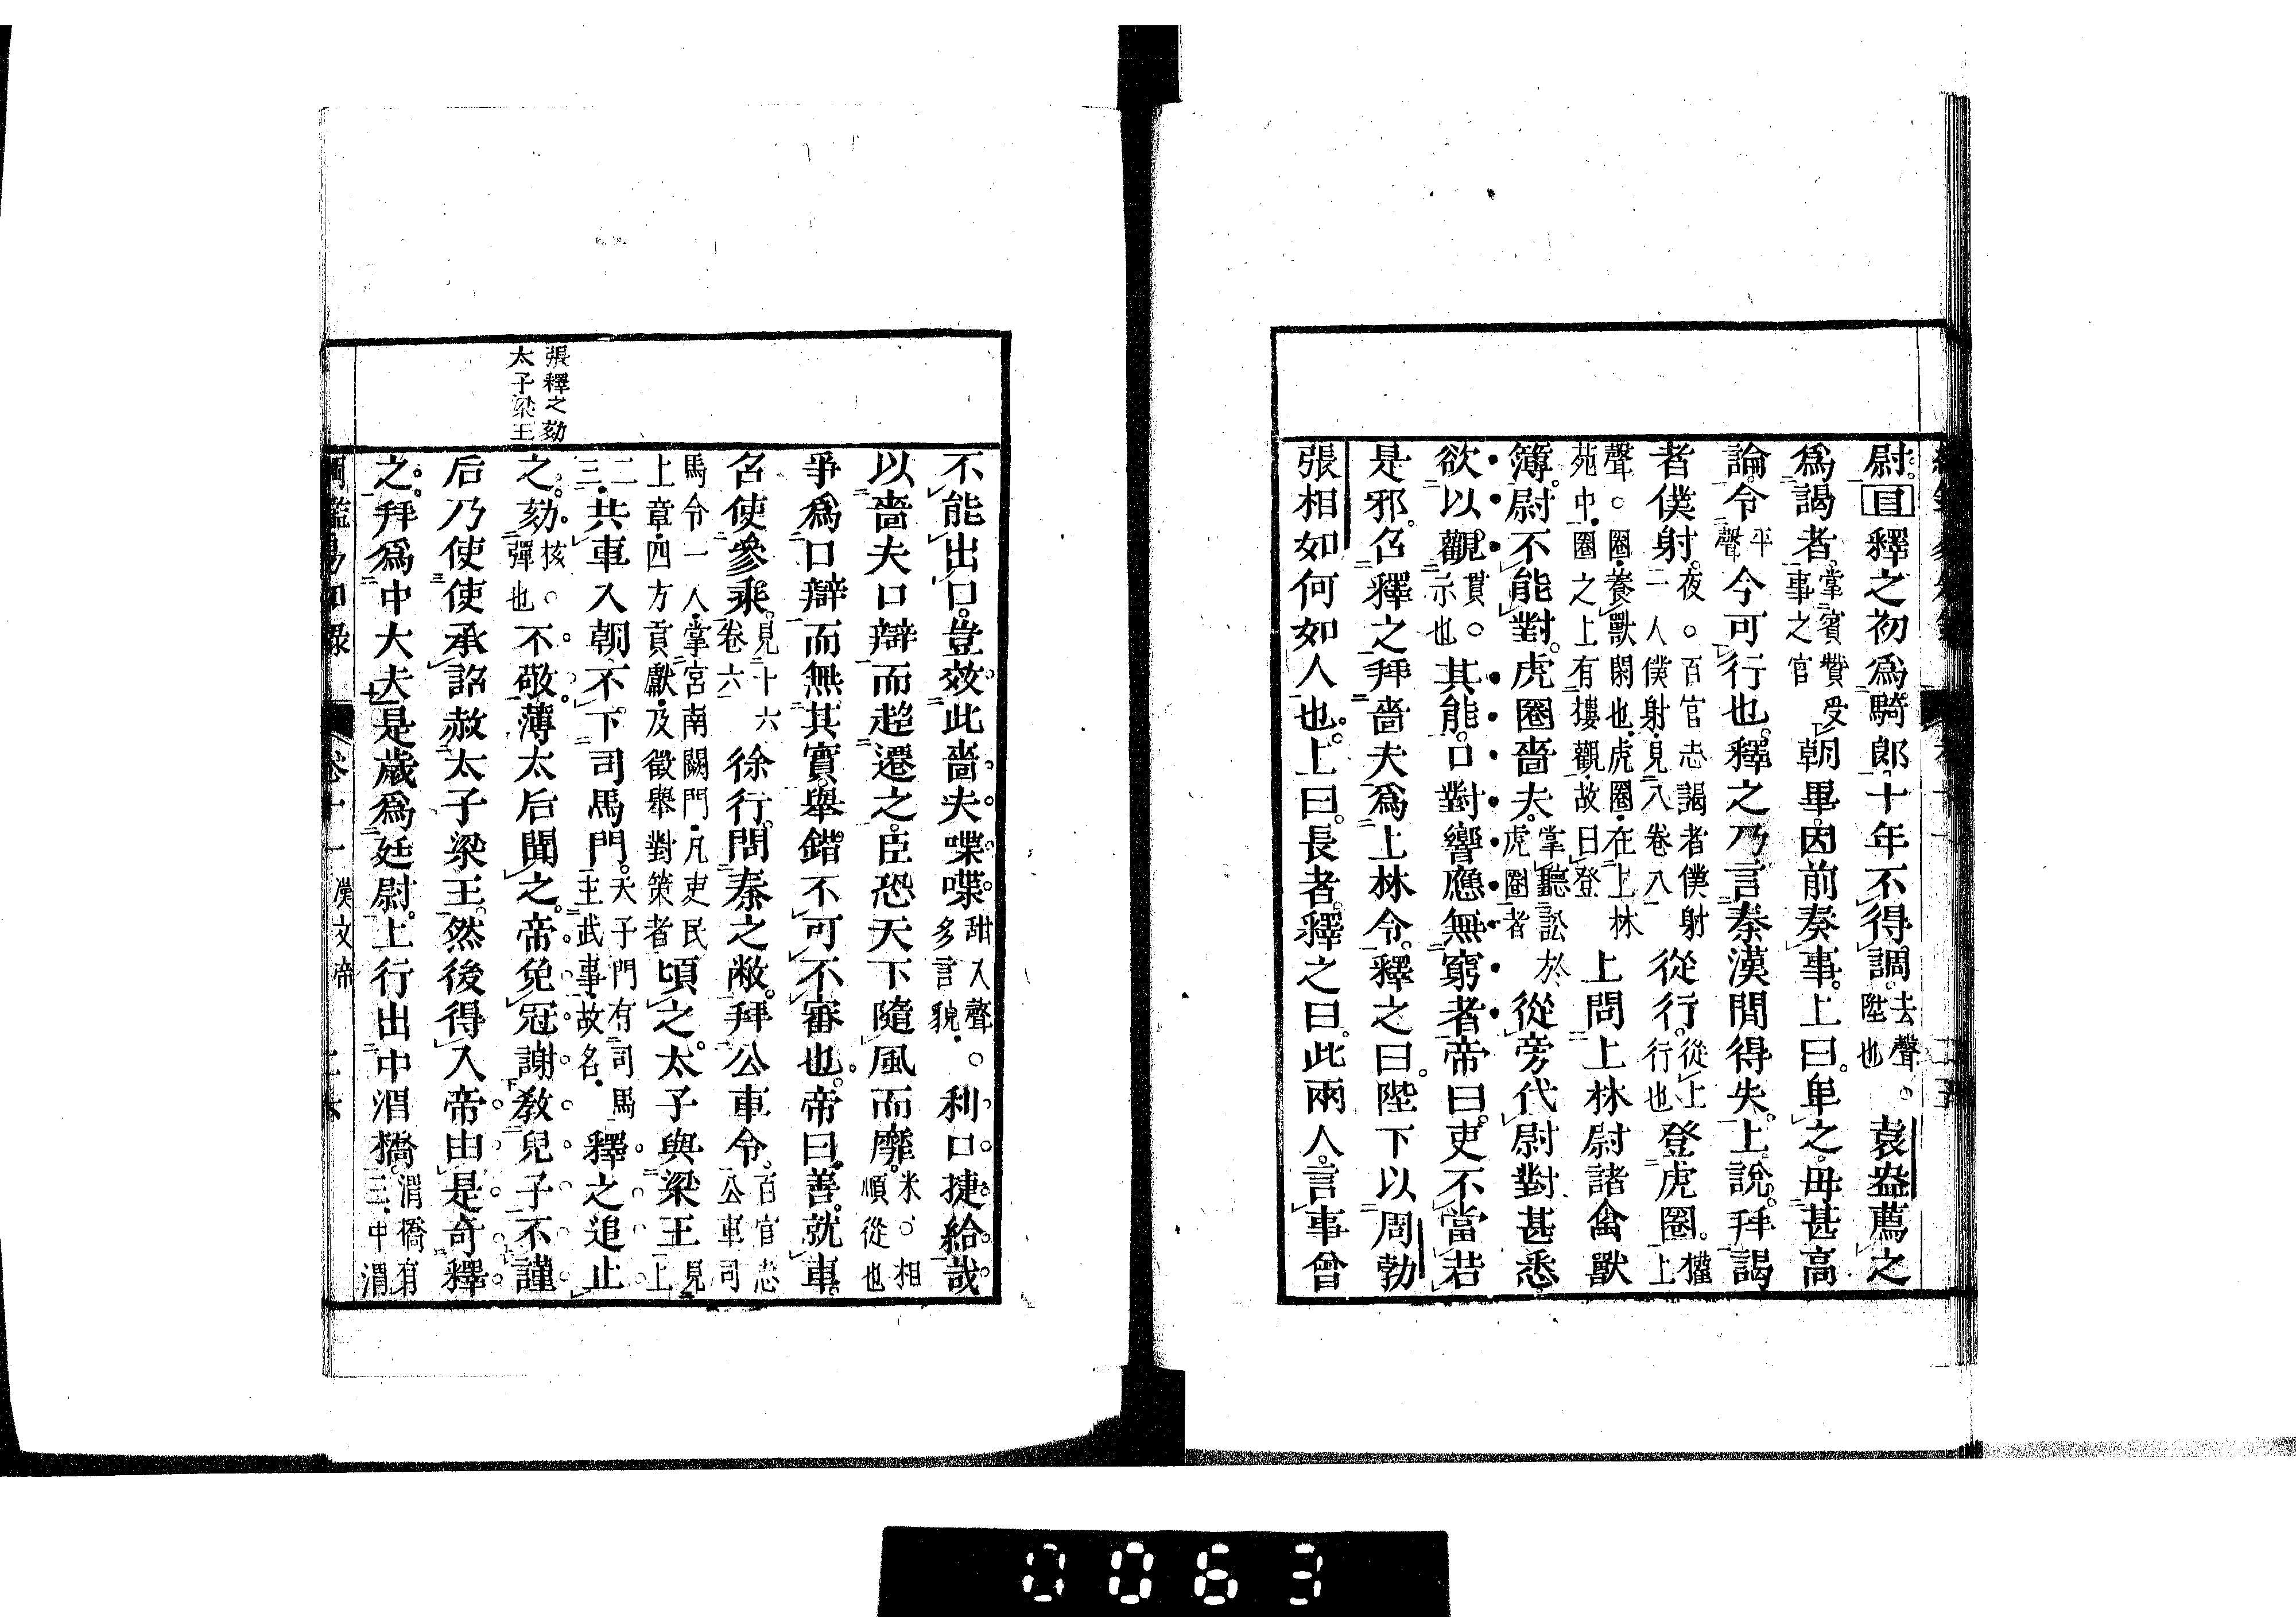 尉。目釋之初爲騎郎。十年不得調。去聲。陞也 袁盎薦之
爲謁者。掌賓贊受事之官 朝畢。因前奏事。上曰。卑之。毋甚高
論。令平聲 今可行也。釋之乃言秦漢閒得失。上說。拜謁
者僕射。夜。百官志謁者僕射一人僕射見八卷八 從行。從上行也 登虎圈。權上
聲。圈養獸閑也虎圈在上林苑中圈之上有樓觀故曰登 上問上林尉諸禽獸
簿。尉不能對。虎圈嗇夫。掌聽訟於虎圈者 從旁代尉對甚悉。
欲以觀貫。示也 其能。口對響應無窮者帝曰。吏不當若
是邪。召釋之拜嗇夫爲上林令。釋之曰。陛下以周勃
張相如何如人也。上曰。長者。釋之曰。此兩人。言事曾
張釋之劾
太子梁王
不能出口。豈效此嗇夫喋喋甜入聲多言貌。利口捷給哉
以嗇夫口辯而超遷之。臣恐天下隨風而靡。米。相順從也
爭爲口辯而無其實。舉錯不可不審也。帝曰。善。就車。
召使參乘。見十六卷六 徐行。問秦之敝。拜公車令。百官志公車司
馬令一人掌宮南闕門凡吏民上章四方貢獻及徵舉對策者 頃之。太子與梁王見上
二三 共車入朝不下司馬門。天子門有司馬主武事故名 釋之追止
之。劾核。彈也 不敬。薄太后聞之。帝免冠謝敎兒子不謹
后乃使使承詔赦太子梁王。然後得入帝由是奇釋
之。拜爲中大夫是歲爲廷尉。上行出中渭橋。渭橋有三中渭
卷十一 漢文帝